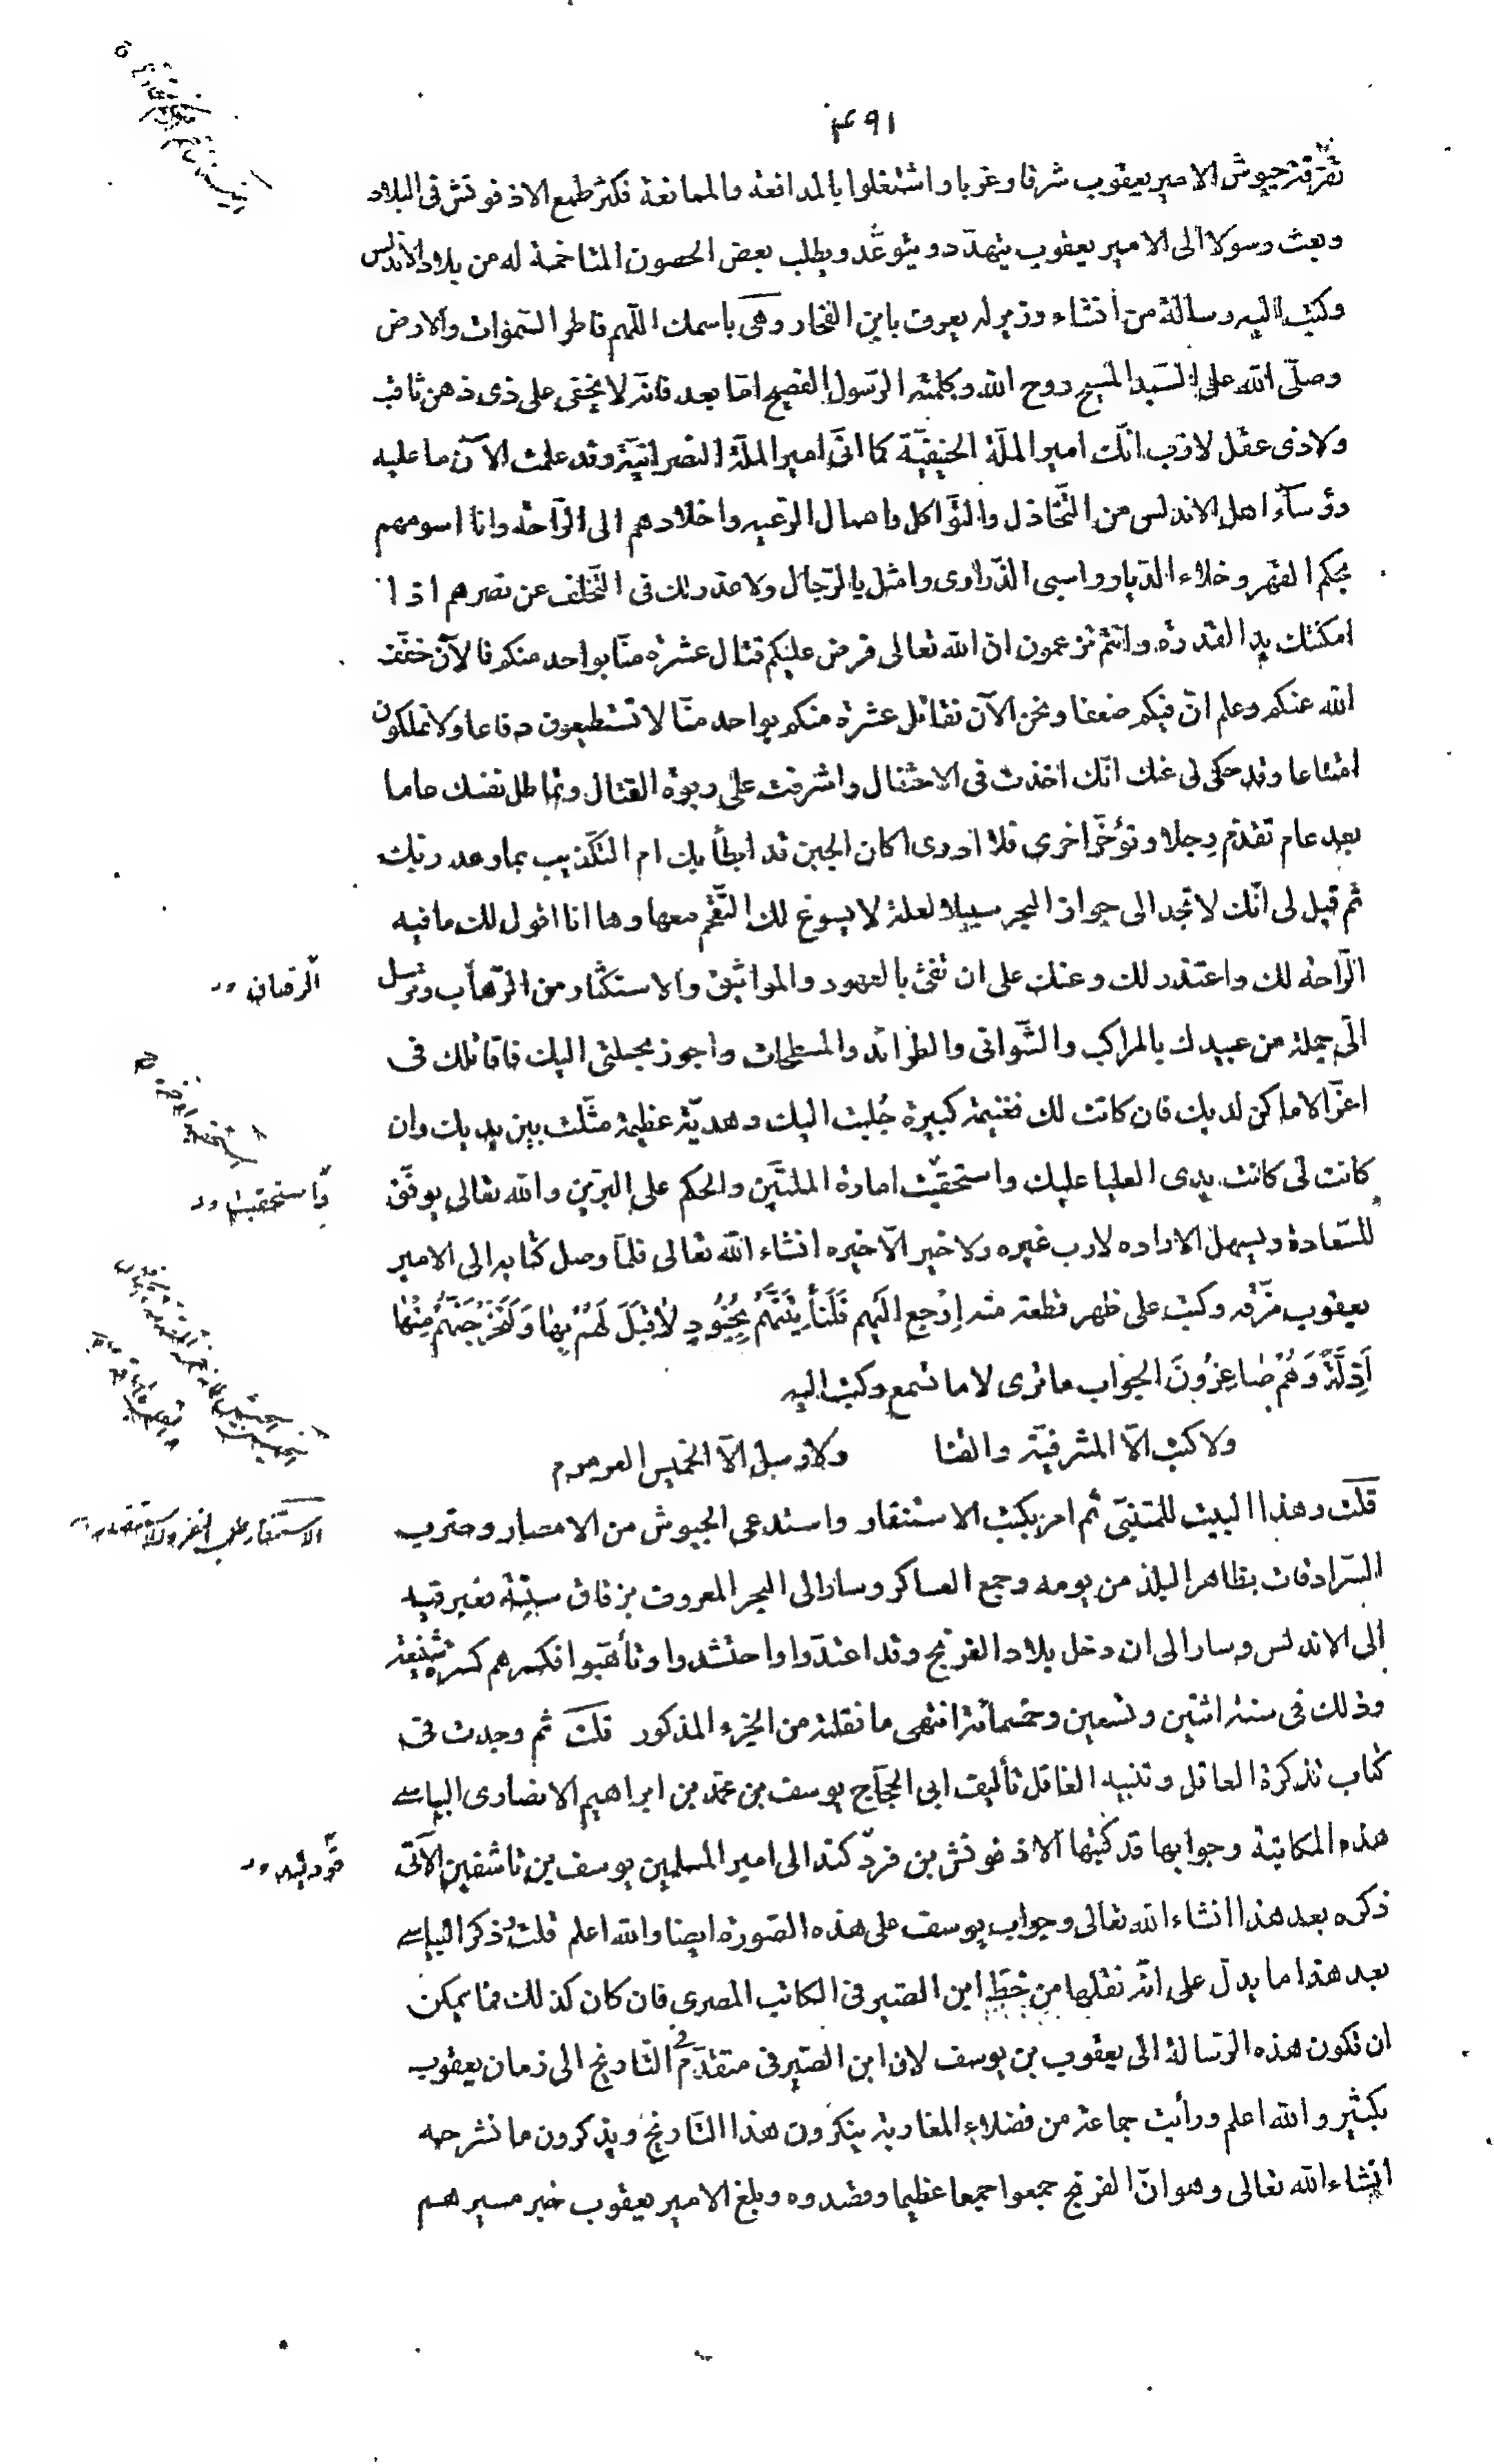 ٤٩١
تفرّقت جيوش الامير يعقوب شرقا وغربا واشتغلوا بالمدافعة والممانعة فكثر طمع الاذفونش فى البلاد
وبعث رسولا الى الامير يعقوب يتهدّد ويتوعّد ويطلب بعض الحصون المتاخمة له من بلاد الاندلس
وكتب اليه رسالة من انشاء وزير له يعرف بابن الفخار وهى باسمك اللّهم فاطر السّموات والارض
وصلّى الله على السّيد المسيح روح الله وكلمته الرّسول الفصيح امّا بعد فانّه لا يخفى على ذى ذهن ثاقب
ولا ذى عقل لازب انّك امير الملّة الحنيفيّة كما انّى امير الملّة النصرانيّة وقد علمت الآن ما عليه
رؤسآء اهل الاندلس من التّخاذل والتّواكل واهمال الرّعيه واخلادهم الى الرّاحة وانا اسومهم
بحكم القهر وخلاء الدّيار واسبى الذّرارى وامثل بالرّجال ولا عذر لك فى التّخلّف عن نصرهم اذا
امكنتك يد القدرة وانتم تزعمون ان الله تعالى فرض عليكم قتال عشرة منّا بواحد منكم فالآن خفّف
الله عنكم وعلم انّ فيكم ضعفا ونحن الآن نقاتل عشرة منكم بواحد منّا لا تستطيعون دفاعا ولا تملكون
امتناعا وقد حكى لى عنك انّك اخذت فى الاحتفال واشرفت على ربوة القتال وتماطل نفسك عاما
بعد عام تقدّم رجلا وتؤخّر اخرى فلا ادرى اكان الجبن قد ابطأ بك ام التكذيب بما وعد ربّك
ثم قيل لى انّك لا تجد الى جواز البحر سبيلا لعلة لا يسوغ لك التّقحّم معها وها انا اقول لك ما فيه
الرّاحة لك واعتذر لك وعنك على ان تفى بالعهود والمواثيق والاستكثار من الرّهاب وترسل
الرّهان
الىّ جملة من عبيدك بالمراكب والشّوانى والطّرائد والمسطّحات واجوز بجملتى اليك فاقاتلك فى
اعزّ الاماكن لديك فان كانت لك فغنيمة كبيرة جُلبت اليك وهديّة عظيمة مثّلت بين يديك وان
كانت لى كانت يدى العليا عليك واستحقيت امارة الملّتين والحكم على البرّين والله تعالى يوفّق
للسّعادة ويسهل الاراده لا رب غيره ولا خير الّا خيره انشاء الله تعالى فلمّا وصل كتابه الى الامير
يعقوب مزّقه وكتب على ظهر قطعة منه اِرْجِع اليَهم فَلَنَأْتِيَنَّهُمْ بِجُنُودٍ لاٰ قِبَلَ لَهُمْ بِهٰا وَلَنُخْرِجَنَّهُمْ مِنْهٰا
اَذِلَّةً وَهُمْ صٰاغِرُونَ الجواب ما ترى لا ما تسمع وكتب اليه
ولا كتب الّا المشرفيّة والقنا ولا رسل الّا الخميس العرمرم
قلت وهذا البيت للمتنبّى ثم امر بكتب الاستنفار واستدعى الجيوش من الامصار وضرب
السّرادقات بظاهر البلد من يومه وجمع العساكر وسار الى البحر المعروف بزقاق سبتة فعبر فيه
الى الاندلس وسار الى ان دخل بلاد الفرنج وقد اعتدّوا واحتشدوا وتأهّبوا فكسرهم كسرة شنيعة
وذلك فى سنة اثنتين وتسعين وخمسمائة انتهى ما نقلته من الجزء المذكور قلت ثم وجدت فى
كتاب تذكرة العاقل وتنبيه الغافل تأليف ابى الحجّاج يوسف بن محمّد بن ابراهيم الانصارى البياسى
هذه المكاتبة وجوابها قد كتبها الاذفونش بن فرذلند الى امير المسلمين يوسف بن تاشفين الآتى
ذكره بعد هذا انشاء الله تعالى وجواب يوسف على هذه الصّورة ايضا والله اعلم قلت وذكر البياسى
بعد هذا ما يدلّ على انّه نقلها من خطّ ابن الصّيرفى الكاتب المصرى فان كان كذلك فما يمكن
ان تكون هذه الرّسالة الى يعقوب بن يوسف لان ابن الصّيرفى متقدّم فى التاريخ الى زمان يعقوب
بكثير والله اعلم ورأيت جماعة من فضلاء المغاربة ينكرون هذا التّاريخ ويذكرون ما نشرحه
انشاء الله تعالى وهو انّ الفرنج جمعوا جمعا عظيما وقصدوه وبلغ الامير يعقوب خبر مسيرهم